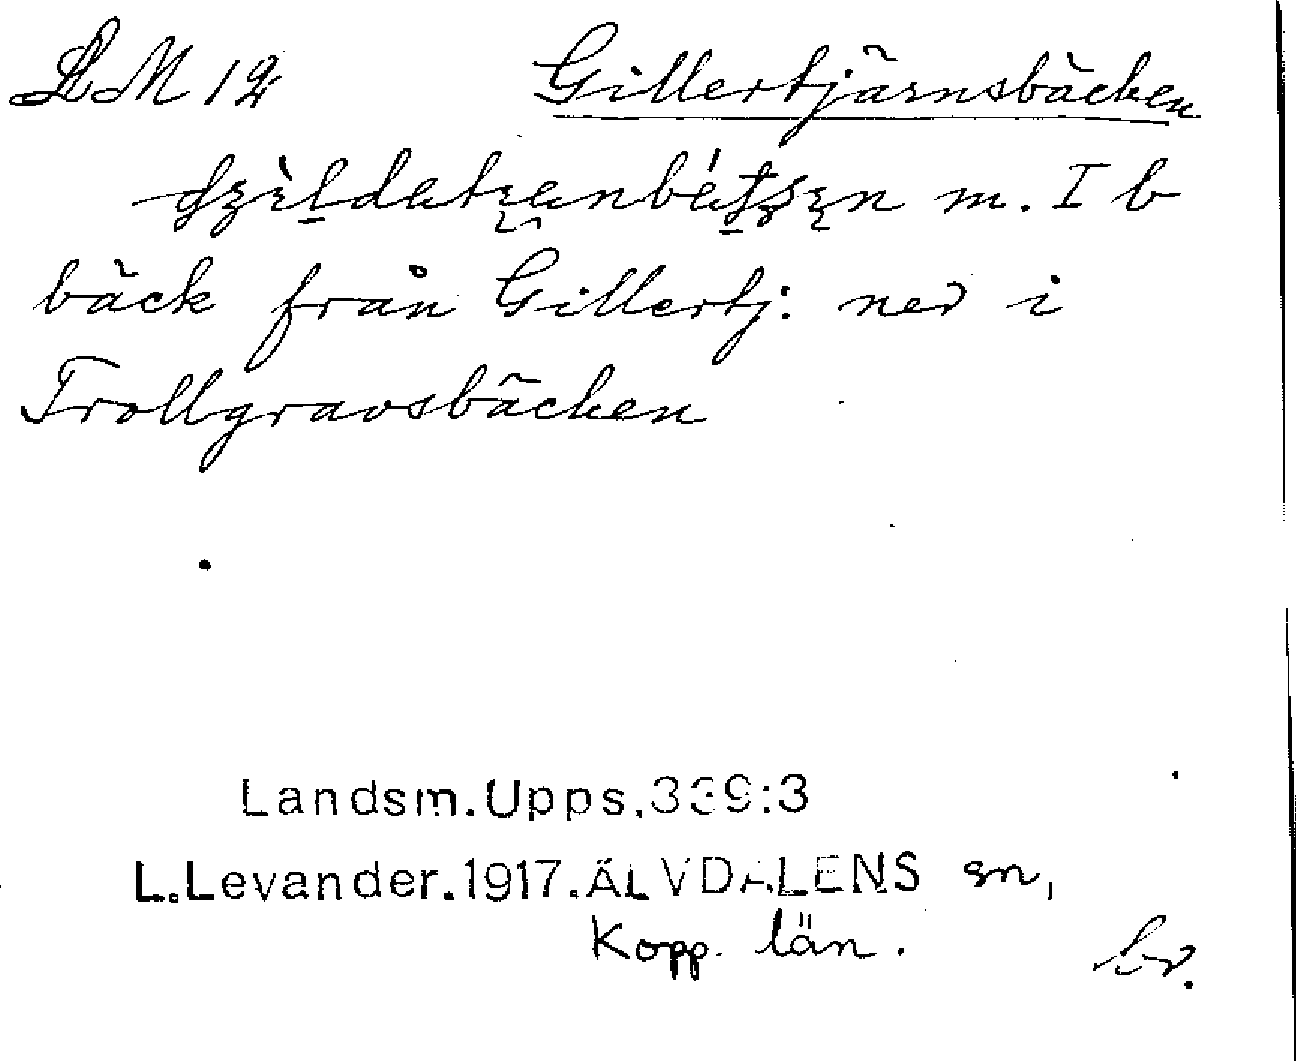 LM 12 Gillertjärnsbäcken
m. I b
bäck från Gillertj: ned i
Trollgravsbäcken
Landsm.Upps.339:3
L.Levander.1917.ÄLVDALENS sn,
Kopp. län.
br.